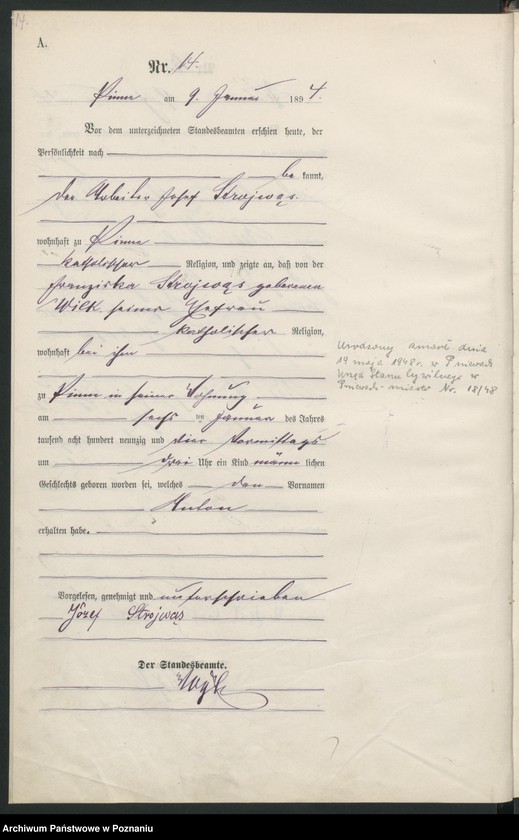 14.
A.
Nr. 14.
Pinne am 9. Januar 1894.
Vor dem unterzeichneten Standesbeamten erschien heute, der
Persönlichkeit nach
be kannt,
der Arbeiter Josef Strojwąs.
wohnhaft zu Pinne
katholischer Religion, und zeigte an, daß von der
Franziska Strojwąs geborenen
Wilk seiner Ehefrau
katholischer Religion,
wohnhaft bei ihm
zu Pinne in seiner Wohnung
am sechs ten Januar des Jahres
tausend acht hundert neunzig und vier Vormittags
um drei Uhr ein Kind männ lichen
Geschlechts geboren worden sei, welches den Vornamen
Anton
erhalten habe.
Vorgelesen, genehmigt und unterschrieben
Józef Strojwąs
Der Standesbeamte.
Urodzony zmarł dnia
19 maja 1948 r. w Pniewach
Urząd Stanu Cywilnego w
Pniewach-miasto Nr. 18/48
Archiwum Państwowe w Poznaniu